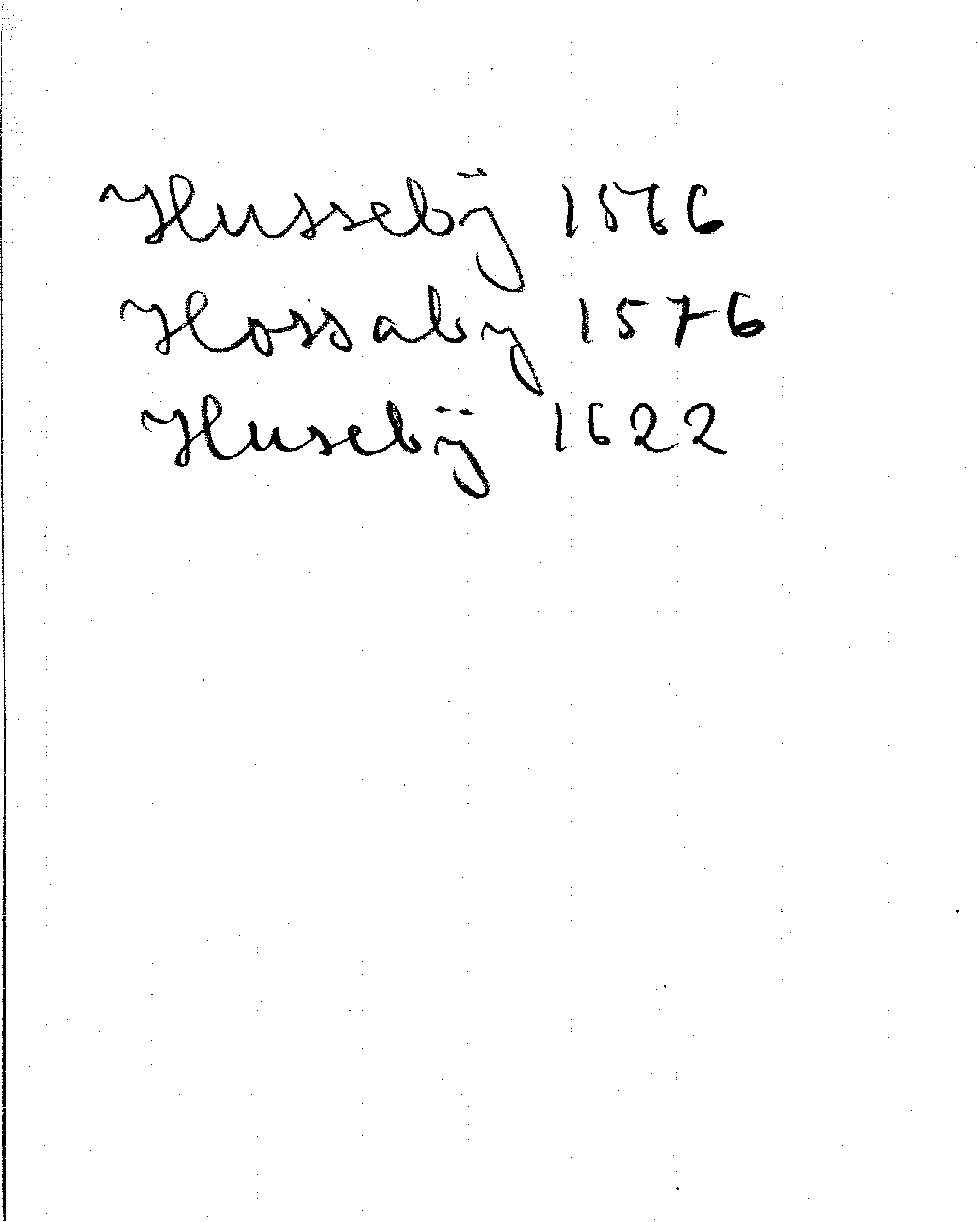 Hussebÿ 1566
Hossaby 1576
Husebÿ 1622